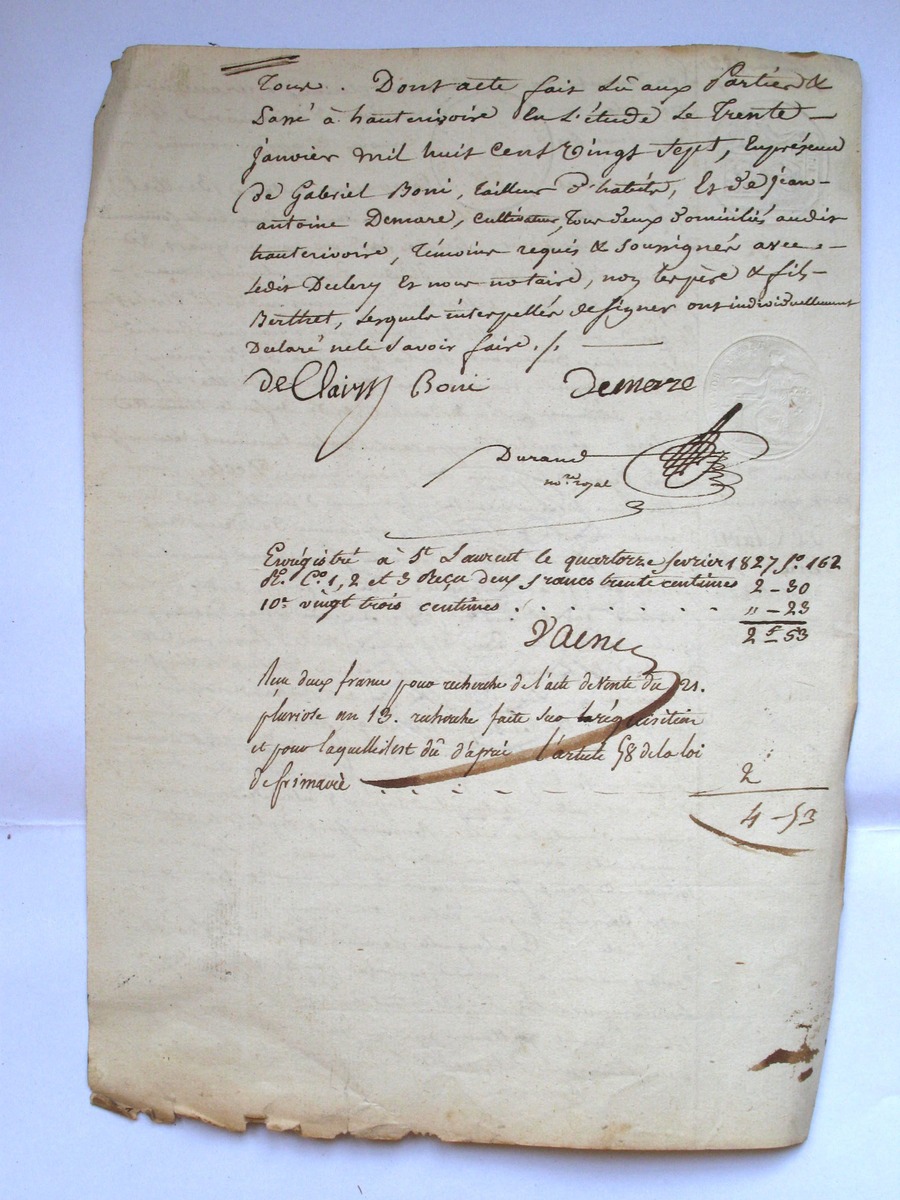 Tous. Dont acte fait Lû aux Parties &
Passé à hauterivoire En L'étude Le Trente
janvier mil huit cent vingt sept, En présence
De Gabriel Boni, Tailleur D'habits, Et de jean
antoine Demare, cultivateur, Tous deux domiciliés audit
hauterivoire, Témoins requis & Soussignés avec
Ledit Declery Et nous notaire, non les père & fils
Berthet, Lesquels interpellés de signer ont individuellement
Declaré ne le Savoir faire ./.
DeClairy Boni Demare
Durand
no.re royal
Enrégistré à St Laurent le quatorze fevrier 1827 fo. 162
Ro. Co. 1, 2 et 3 Reçu deux francs trente centimes 2 - 30
10e vingt trois centimes . . . . . . . " - 23
2 f 53
Reçu deux francs pour recherche de l'acte de Vente du 21.
pluviose an 13. recherche faite sur la réquisition
et pour laquelle il est dû d'après l'article 58 de la loi
de frimaire . . . . . . 2
4 - 53